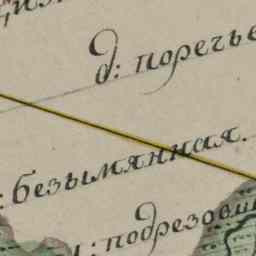 д: поречье
: безымянная.
: подрезовш